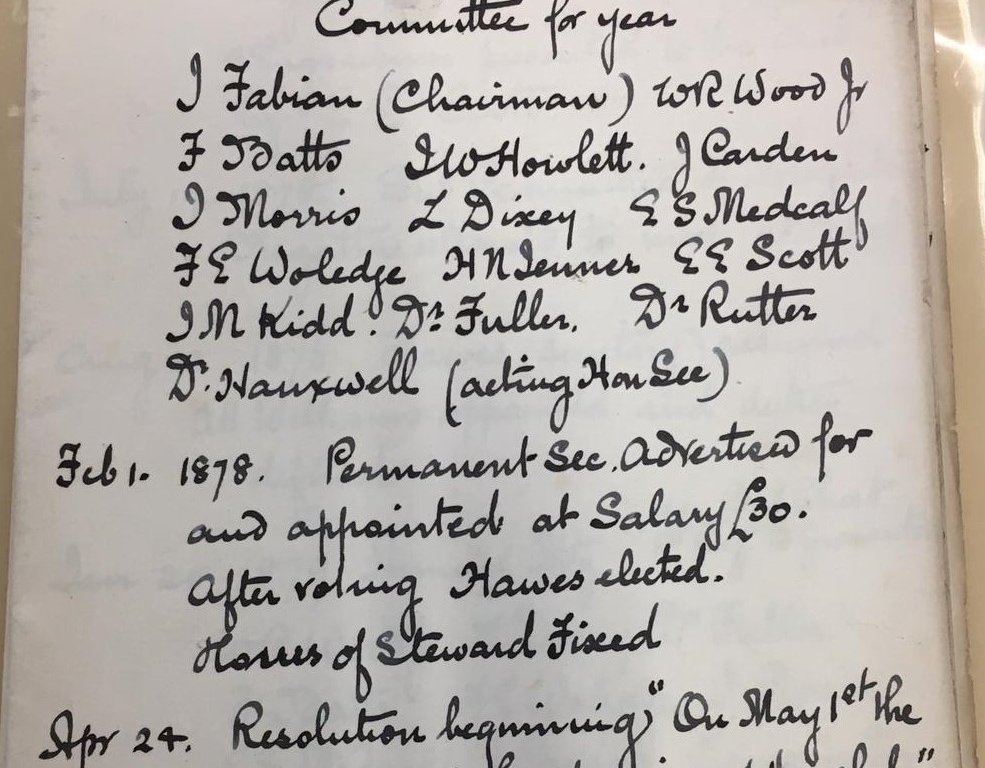 Committee for year
J Fabian (Chairman) WR Wood Jr
F Batts J W Howlett. J Carden
J Morris L Dixey E S Medcalf
F E Woledge H N Jenner E E Scott
J M Kidd. Dr. Fuller. Dr Rutter
Dr. Hauxwell (acting Hon Sec)
Feb 1. 1878. Permanent Sec. Advertised for
and appointed at Salary £30.
After voting Hawes elected.
Hours of Steward Fixed
Apr 24. Resolution beginning "On May 1st the